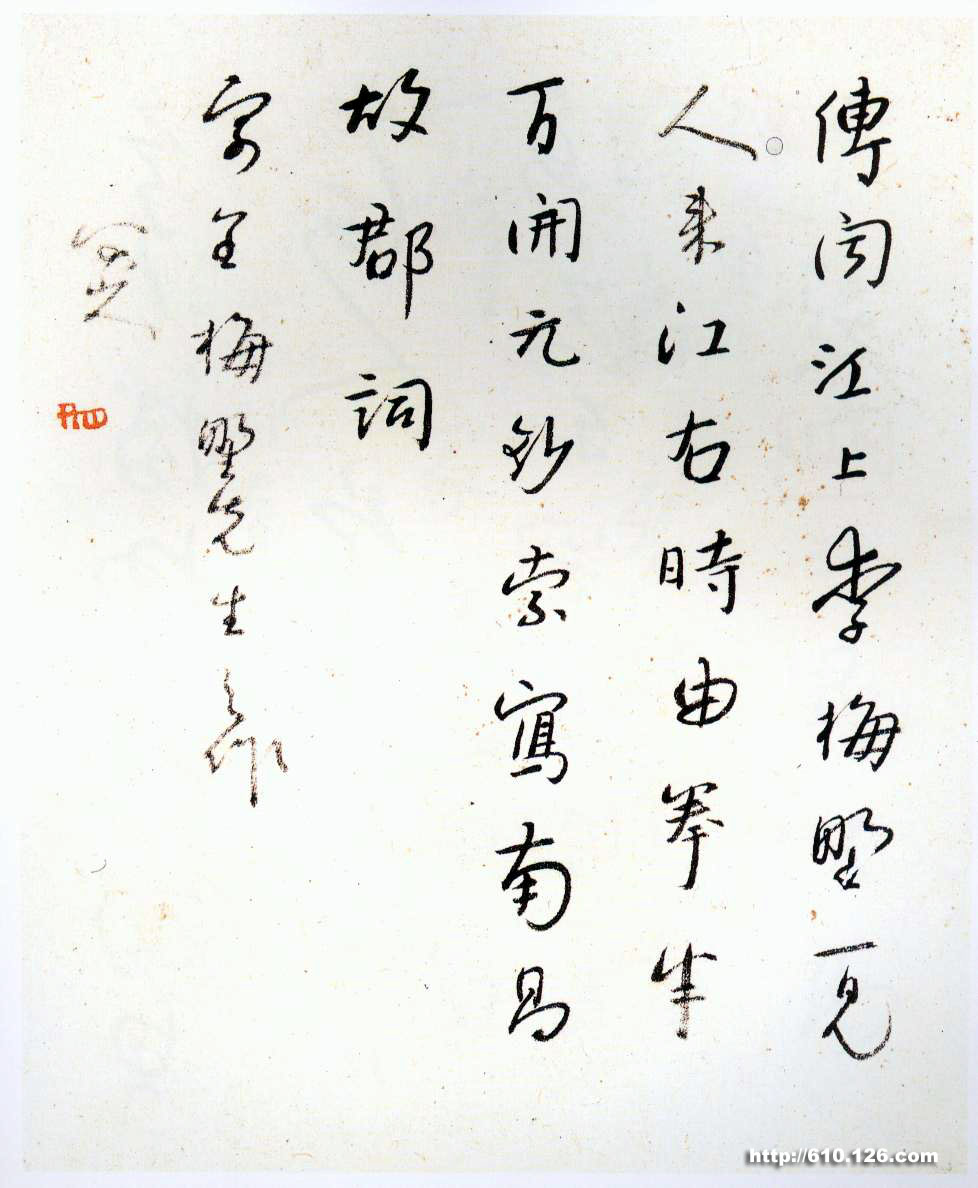 傳聞江上李梅野一見
人來江右時由拳半
百開元鈔索寫南昌
故郡詞
寄呈梅野先生之作
八大
http://610.126.com